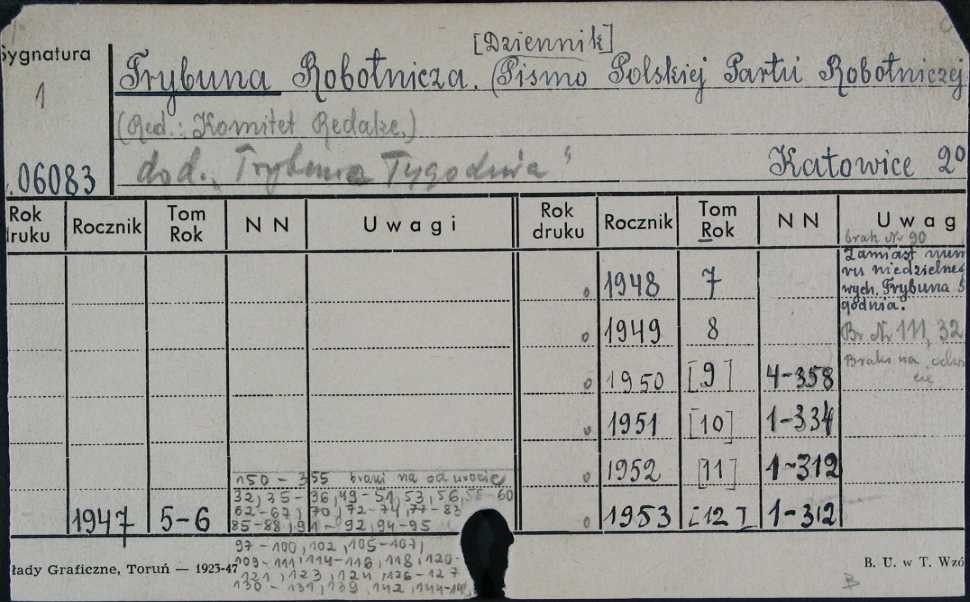 [Dziennik]
Sygnatura
Trybuna Robotnicza. (Pismo Polskiej Partii Robotniczej
1
(Red.: Komitet Redakc.)
dod. „Trybuna Tygodnia"
Katowice 2º
06083
Rok druku Rocznik Tom Rok N N Uwagi Rok druku Rocznik Tom Rok N N Uwag
brak Nr 90
Zamiast nume
ru niedzielneg
wych. Trybuna
godnia.
1948 7
1949 8 Br. Nr 111, 32
Braki na odwro
cie
1950 [9] 4-358
1951 [10] 1-334
1952 [11] 1-312
150 - 355 braki na odwrocie
32, 35-36, 49-51, 53, 56, 58-60
62-67, 70, 72-74, 77-83
1947 5-6 85-88, 91-92, 94-95
1953 [12] 1-312
97-100, 102, 105-107,
109-111, 114-116, 118, 120-
121, 123, 124, 126-127
130-131, 139, 142, 144-
łady Graficzne, Toruń — 1923-47
B. U. w T. Wzó
B